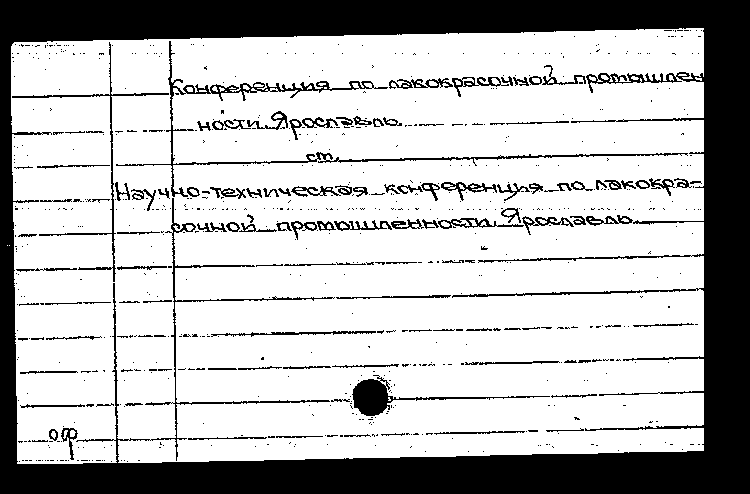 Конференция по лакокрасочной промышлен
ности. Ярославль.
см.
Научно-техническая конференция по лакокра-
сочной промышленности. Ярославль.